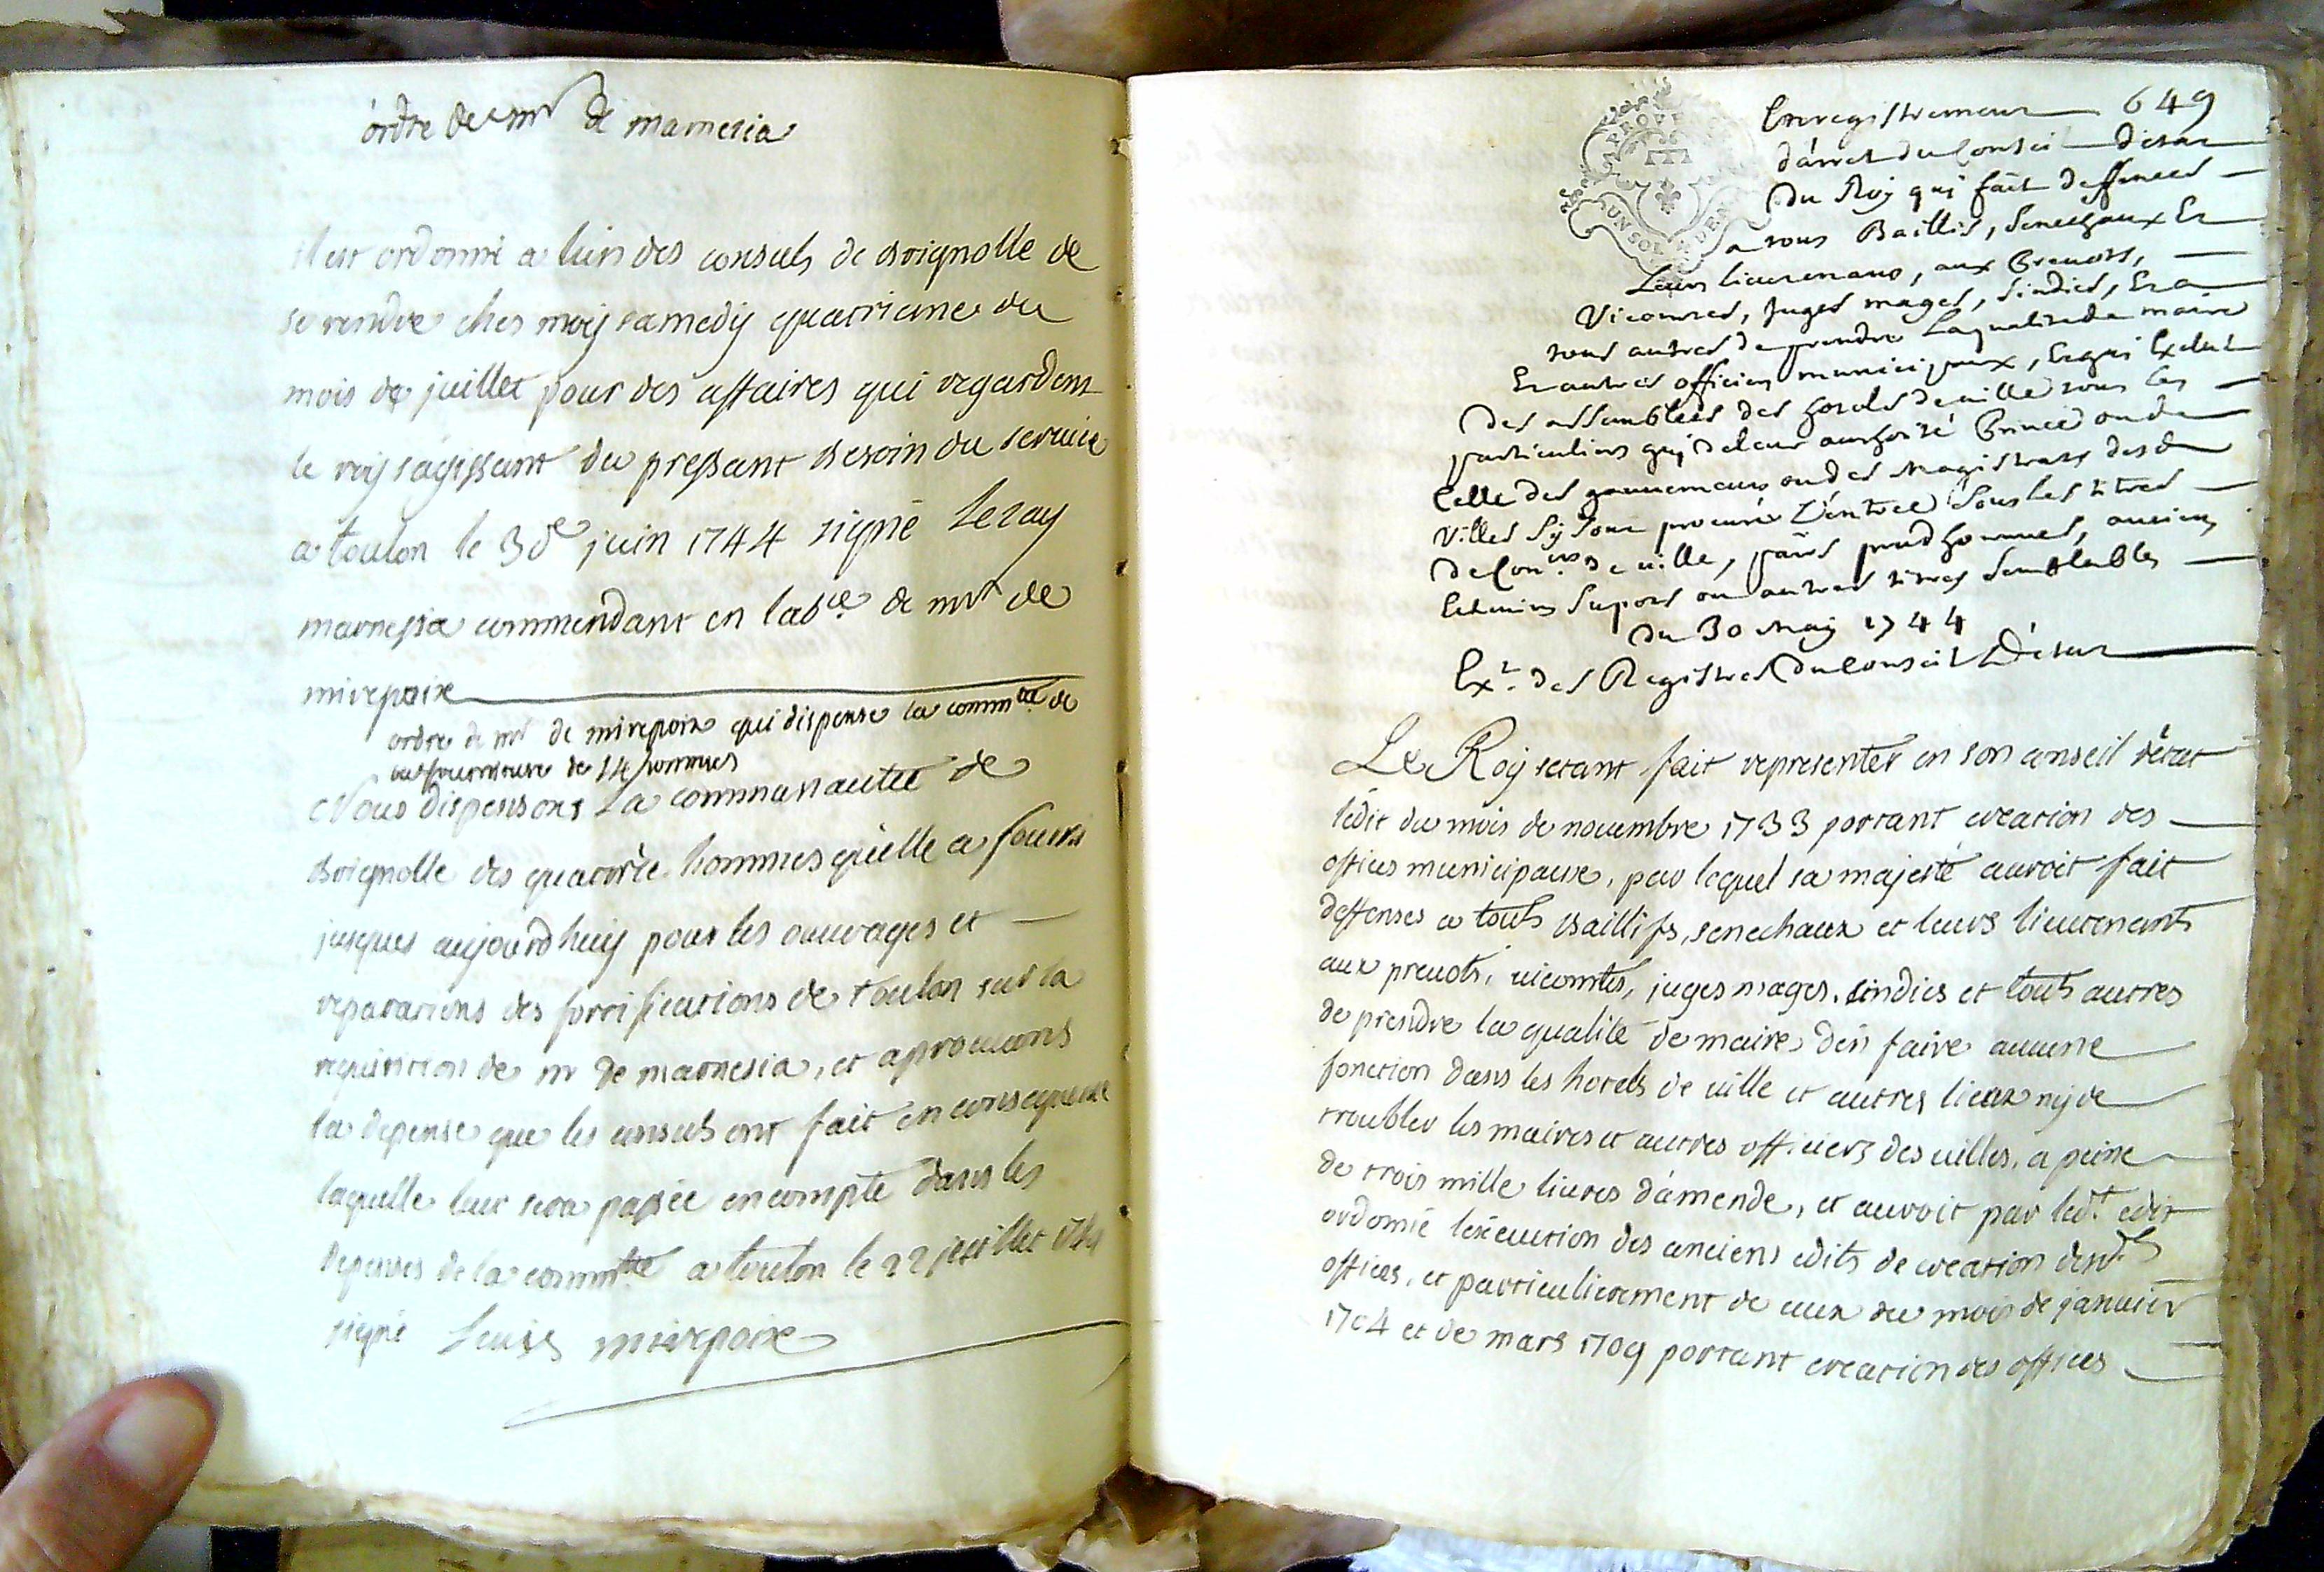 ordre de mr de marnesia
il est ordonné a lun des consuls de brignolle de
se rendre ches moy samedy quatrieme du
mois de juillet pour des affaires qui regardent
le roy sagissant du pressant besoin du service
a toulon le 30e juin 1744 signé Lezay
marnessia commendant en labce de mr de
mirepoix
ordre de mr de mirepoix qui dispense la commté de
fourniture de 14 hommes
Nous dispensons La communauté de
brignolle des quatorze hommes quelle a fourni
jusques aujourdhuy pour les ouvrages et
reparations des fortifications de toulon sur la
requisition de mr de marnesia, et aprouvons
la depense que les consuls ont fait en consequence
laquelle leur sera passée en compte dans les
depenses de la commté a toulon le 22 juillet 1744
signé Levis mirepoix
649
Enregistrement
d'arrest du Conseil destat
du Roy qui fait deffences
a tous Baillis, Senechaux Et
Leurs lieutenans, aux Prevots,
Vicomtes, juges mages, sindics, Et a
tous autres de prendre La qualité de maire
Et autres officiers municipaux, Et qui Exclut
des assemblées des hotels de ville tous les
particuliers qui de leur authorité Privée ou de
Celle des gouverneurs ou des Magistrats desd
Villes sy sont procurés L'entrée sous les titres
de Coners de ville, pairs prudhommes, anciens
Echevins suposts ou autres titres semblables
du 30 May 1744
Ext. des Registres du Conseil D'état
Le Roy setant fait representer en son conseil détat
lédit du mois de novembre 1733 portant creation des
offices municipaux, par lequel sa majesté auroit fait
deffenses a touts baillifs, senechaux et leurs lieutenants
aux prevots, vicomtes, juges mages, sindics et touts autres
de prendre la qualité de maire, dén faire aucune
fonction dans les hotels de ville et autres lieux ny de
troubler les maires et autres officiers des villes, a peine
de trois mille livres dámende, et auroit par ledt. edit
ordonné lexécution des anciens edits de creation desds
offices, et particulierement de ceux du mois de janvier
1704 et de mars 1709 portant creation des offices